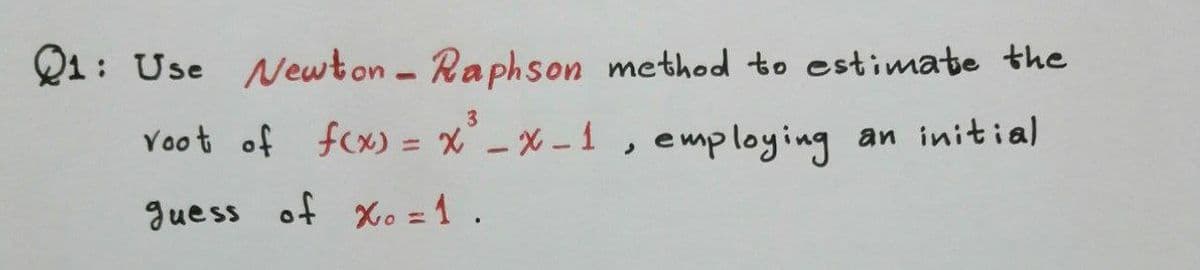 Q1: Use Newton - Raphson method to estimate the
root of f(x) = x³ - x - 1 , employing an initial
guess of x₀ = 1 .